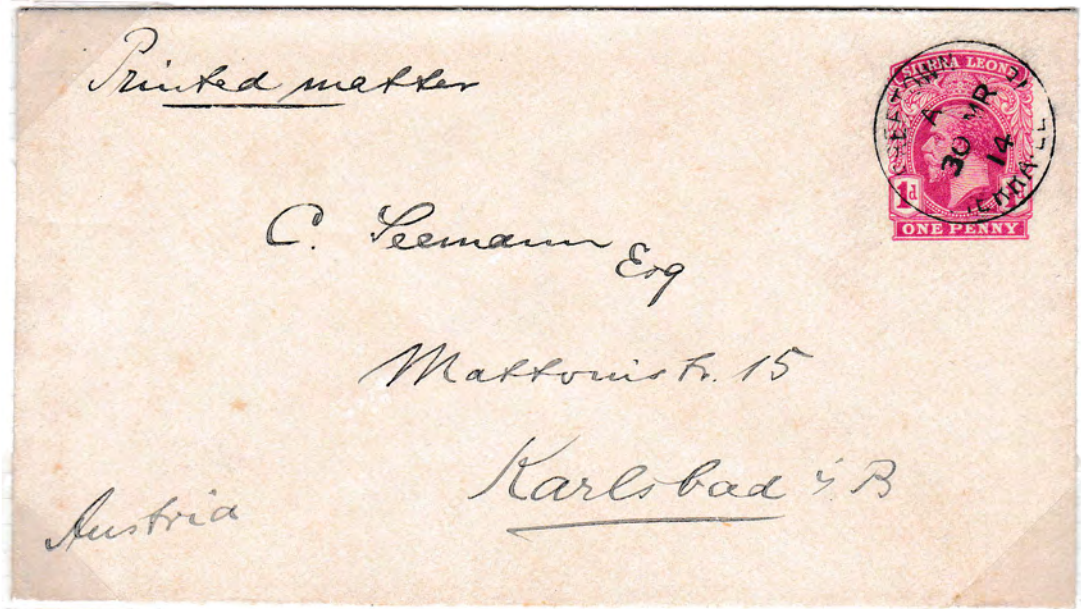 Printed matter
SIERRA LEONE
FREETOWN
A
30 MR
14
1d
ONE PENNY
C. Seemann
Esq
Mattonistr. 15
Karlsbad i. B
Austria